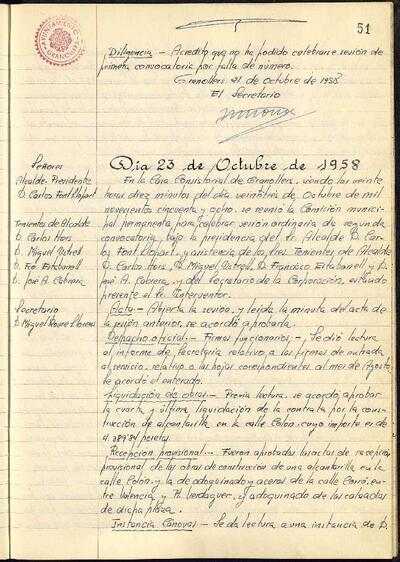 51
AYUNTAMIENTO
GRANOLLERS
Diligencia - Acredito que no ha podido celebrarse sesión de
primera convocatoria por falta de número.
Granollers 21 de Octubre de 1958
El Secretario
Día 23 de Octubre de 1958
Señores
Alcalde-Presidente
D. Carlos Font Llopart
Tenientes de Alcalde
D. Carlos Hors
D. Miguel Ustrell
D. Fco. Estabanell
D. José A. Cabrera
Secretario
D. Miguel Roure Llorens
En la Casa Consistorial de Granollers, siendo las veinte
horas diez minutos del día veintitres de Octubre de mil
novecientos cincuenta y ocho, se reunió la Comisión munici-
pal permanente para celebrar sesión ordinaria de segunda
convocatoria, bajo la presidencia del Sr. Alcalde D. Car-
los Font Llopart, y asistencia de los Tres Tenientes de Alcalde
D. Carlos Hors, D. Miguel Ustrell, D. Francisco Estabanell y D.
José A. Cabrera, y del Secretario de la Corporación, estando
presente el Sr. Interventor.
Acta - Abierta la sesión, y leída la minuta del acta de
la sesión anterior, se acordó aprobarla.
Despacho oficial.- Firmas funcionarios - Se dió lectura
al informe de Secretaría relativo a las firmas de entrada
al servicio, relativo a las hojas correspondientes al mes de Agosto
se acordó el enterado.
Liquidación de obras.- Previa lectura, se acordó aprobar
la cuarta y última liquidación de la contrata por la cons-
trucción de alcantarilla en la calle Colón, cuyo importe es de
pesetas.
Recepción provisional.- Fueron aprobadas las actas de recepción
provisional de las obras de construcción de una alcantarilla en la
calle Colón, y la de adoquinado y aceras de la calle
entre Valencia y Pl. Verdaguer, y adoquinado de las calzadas
de dicha plaza.
Instancia Cánovas - Se da lectura a una instancia de D.